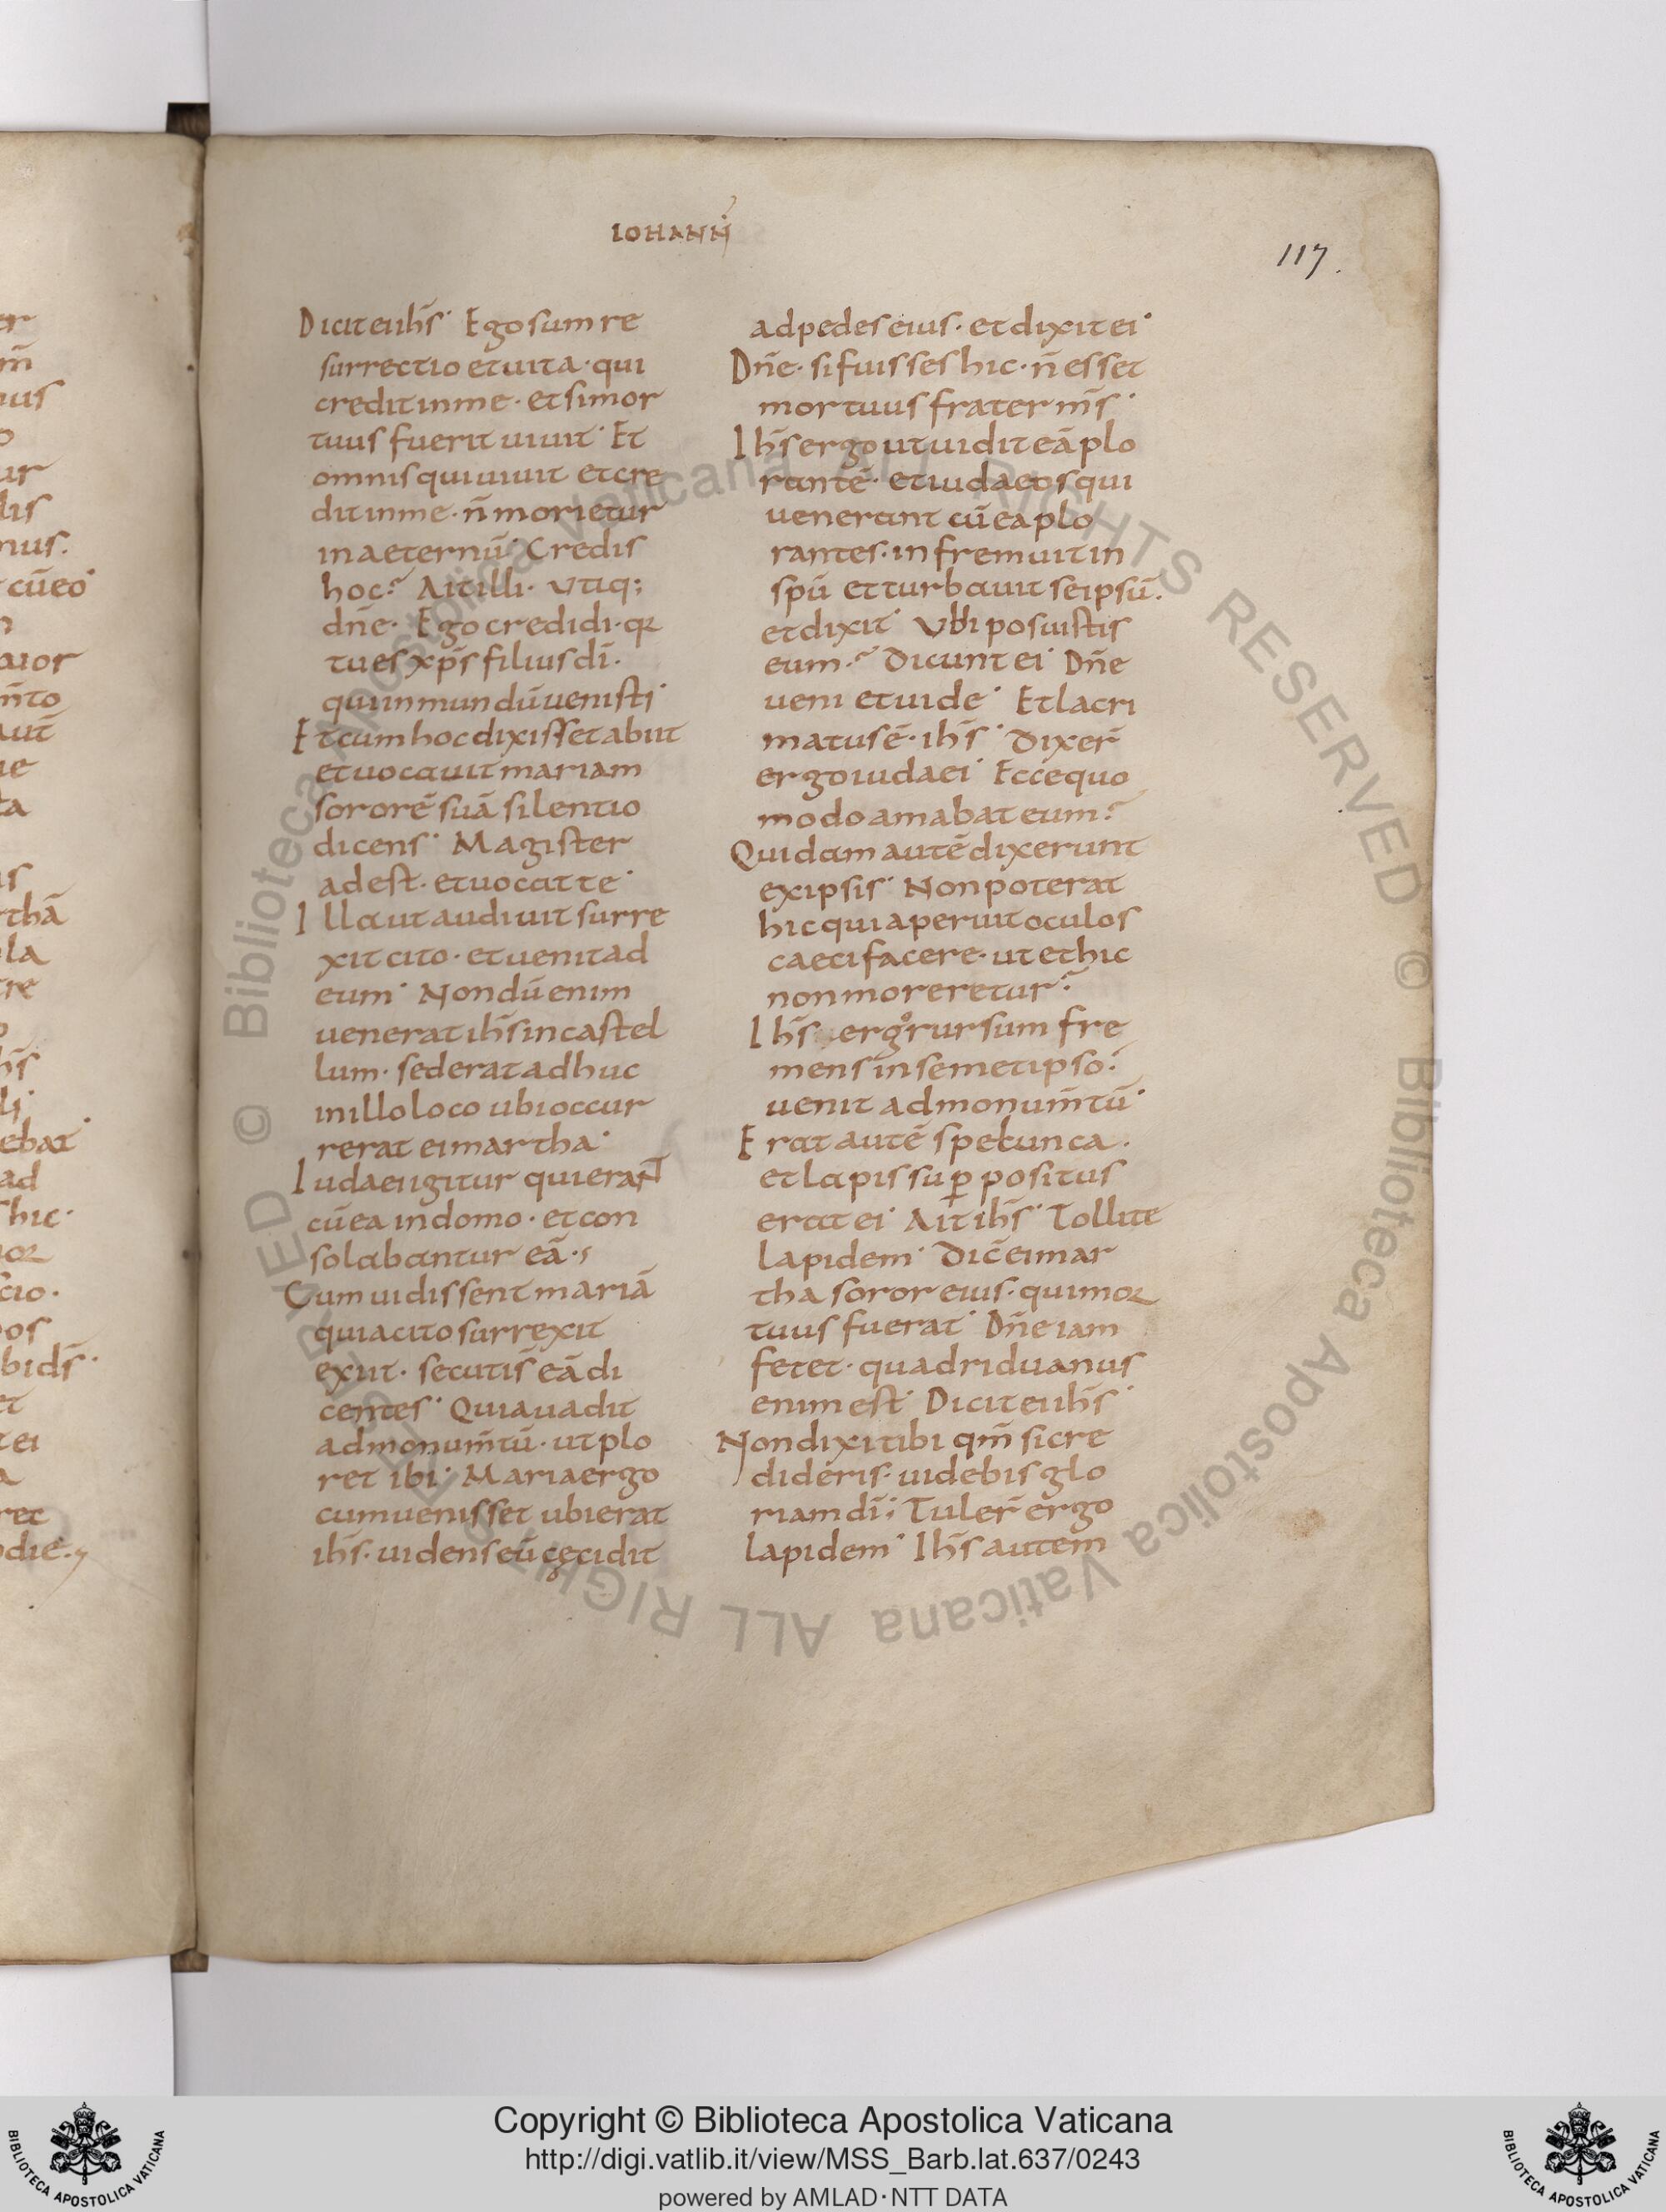 IOHANN̄
117.
Dicit ei ih̄s· Ego sum re
surrectio et uita· qui
credit in me· et si mor
tuus fuerit uiuit· Et
omnis qui uiuit et cre
dit in me· n̄ morietur
in aeternū· Credis
hoc? Ait illi· Utiq;
dn̄e· Ego credidi· qꝛ
tu es xp̄s filius dī·
qui in mundū uenisti·
Et cum hoc dixisset abiit
et uocauit mariam
sororē suā silentio
dicens· Magister
adest· et uocat te·
Illa ut audiuit surre
xit cito· et uenit ad
eum· Nondū enim
uenerat ih̄s in castel
lum· sed erat adhuc
in illo loco ubi occur
rerat ei martha·
Iudaei igitur qui erant
cū ea in domo· et con
solabantur eā·,
Cum uidissent mariā
quia cito surrexit
exiit· secuti s̄ eā di
centes· Quia uadit
ad monum̄tū· ut plo
ret ibi· Maria ergo
cum uenisset ubi erat
ih̄s· uidens eū cecidit
ad pedes eius· et dixit ei·
Dn̄e· si fuisses hic· n̄ esset
mortuus frater m̄s·
Ih̄s ergo ut uidit eā plo
rantē· et iudaeos qui
uenerant cū ea plo
rantes· infremuit in
sp̄u et turbauit se ipsū.
et dixit· Ubi posuistis
eum·? Dicunt ei· Dn̄e
ueni et uide· Et lacri
matus ē· ih̄s· Dixer̄
ergo iudaei· Ecce quo
modo amabat eum?
Quidam autē dixerunt
ex ipsis· Non poterat
hic qui aperuit oculos
caeci facere· ut et hic
non moreretur?
Ih̄s ergo rursum fre
mens in semetipso·
uenit ad monum̄tū·
Erat autē spelunca.
et lapis suꝑpositus
erat ei· Ait ih̄s· Tollite
lapidem· Dic̄ ei mar
tha soror eius· qui moꝛ
tuus fuerat· Dn̄e iam
fetet· quadriduanus
enim est· Dicit ei ih̄s·
Non dixi tibi qm̄ si cre
dideris· uidebis glo
riam dī; Tuler̄ ergo
lapidem· Ih̄s autem
© Biblioteca Apostolica Vaticana ALL RIGHTS RESERVED © Biblioteca Apostolica Vaticana ALL RIGHTS RESERVED
Copyright © Biblioteca Apostolica Vaticana
http://digi.vatlib.it/view/MSS_Barb.lat.637/0243
powered by AMLAD·NTT DATA
BIBLIOTECA APOSTOLICA VATICANA
BIBLIOTECA APOSTOLICA VATICANA